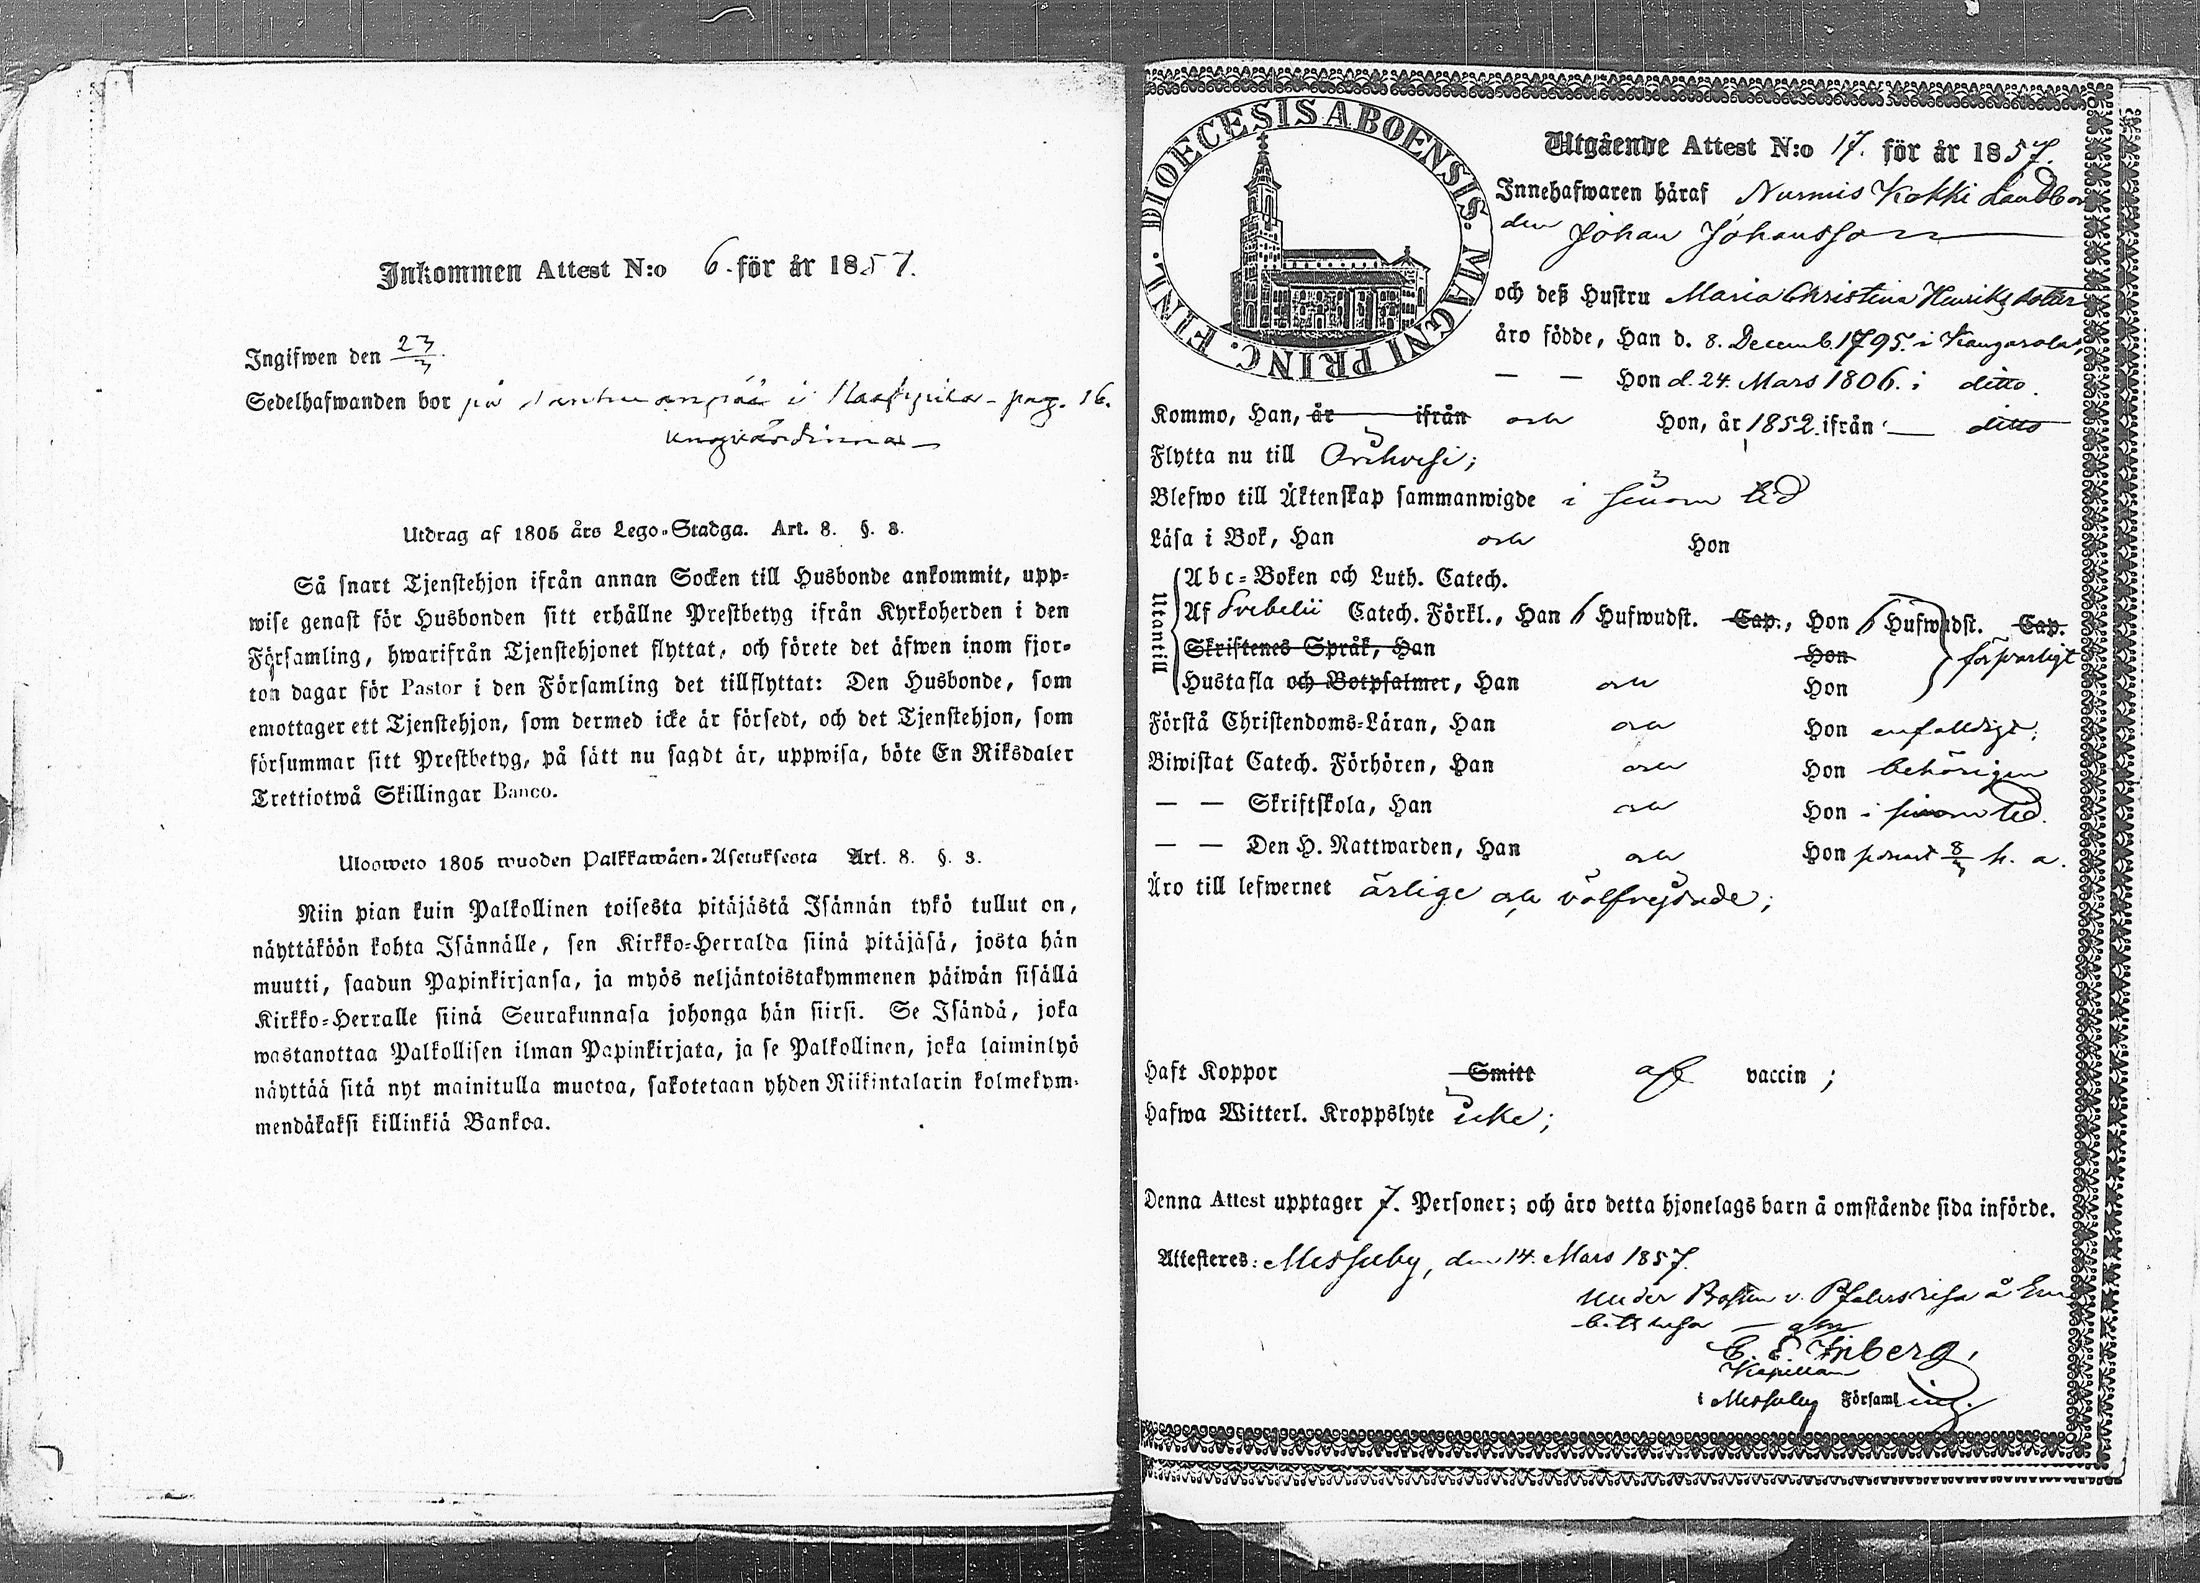 Inkommen Attest N:o 6. för år 1857.
Ingifwen den 23/3.
Sedelhafwanden bor på i pag. 16.
Utdrag af 1805 års Lego-Stadga. Art. 8. §. 3.
Så snart Tjenstehjon ifrån annan Socken till Husbonde ankommit, upp-
wise genast för Husbonden sitt erhållne Prestbetyg ifrån Kyrkoherden i den
Församling, hwarifrån Tjenstehjonet flyttat, och förete det äfwen inom fjor-
ton dagar för Pastor i den Församling det tillflyttat: Den Husbonde, som
emottager ett Tjenstehjon, som dermed icke är försedt, och det Tjenstehjon, som
försummar sitt Prestbetyg, på sätt nu sagdt är, uppwisa, böte En Riksdaler
Trettiotwå Skillingar Banco.
Ulosweto 1805 wuoden Palkkawäen-Asetuksesta Art. 8. §. 3.
Niin pian kuin Palkollinen toisesta pitäjästä Isännän tykö tullut on,
näyttäköön kohta Isännälle, sen Kirkko-Herralda siinä pitäjäsä, josta hän
muutti, saadun Papinkirjansa, ja myös neljäntoistakymmenen päiwän sisällä
Kirkko-Herralle siinä Seurakunnasa johonga hän siirsi. Se Isändä, joka
wastanottaa Palkollisen ilman Papinkirjata, ja se Palkollinen, joka laiminlyö
näyttää sitä nyt mainitulla muotoa, sakotetaan yhden Riikintalarin kolmekym-
mendäkaksi killinkiä Bankoa.
DIOECESIS ABOENSIS. MAGNI PRINC. FINL.
Utgående Attest N:o 17. för år 1857.
Innehafwaren häraf Nurmis Kokki Landbon
den Johan Johansson
och deß Hustru Maria Christina Henriksdotter
äro födde, Han d. 8. Decemb. 1795. i Kangasala,
— — Hon d. 24. Mars 1806. i ditto.
Kommo, Han, år ifrån och Hon, år 1852. ifrån — ditto
Flytta nu till Orihvesi;
Blefwo till Äktenskap sammanwigde i sinom tid
Läsa i Bok, Han och Hon
Utantill
Abc-Boken och Luth. Catech.
Af Svebelii Catech. Förkl., Han 6 Hufwudst. Cap., Hon 6 Hufwudst. Cap.
Skriftenes Språk, Han Hon försvarligt
Hustafla och Botpsalmer, Han och Hon
Förstå Christendoms-Läran, Han och Hon enfaldigt;
Biwistat Catech. Förhören, Han och Hon behörigen
— — Skriftskola, Han och Hon i sinom tid.
— — Den H. Nattwarden, Han och Hon senast 8/3 h. a.
Äro till lefwernet ärlige och välfrejdade;
Haft Koppor Smitt af vaccin;
Hafwa Witterl. Kroppslyte icke;
Denna Attest upptager 7. Personer; och äro detta hjonelags barn å omstående sida införde.
Attesteres: Messuby, den 14. Mars 1857.
Under
C. E.
Kapellan
i Messuby Församling.